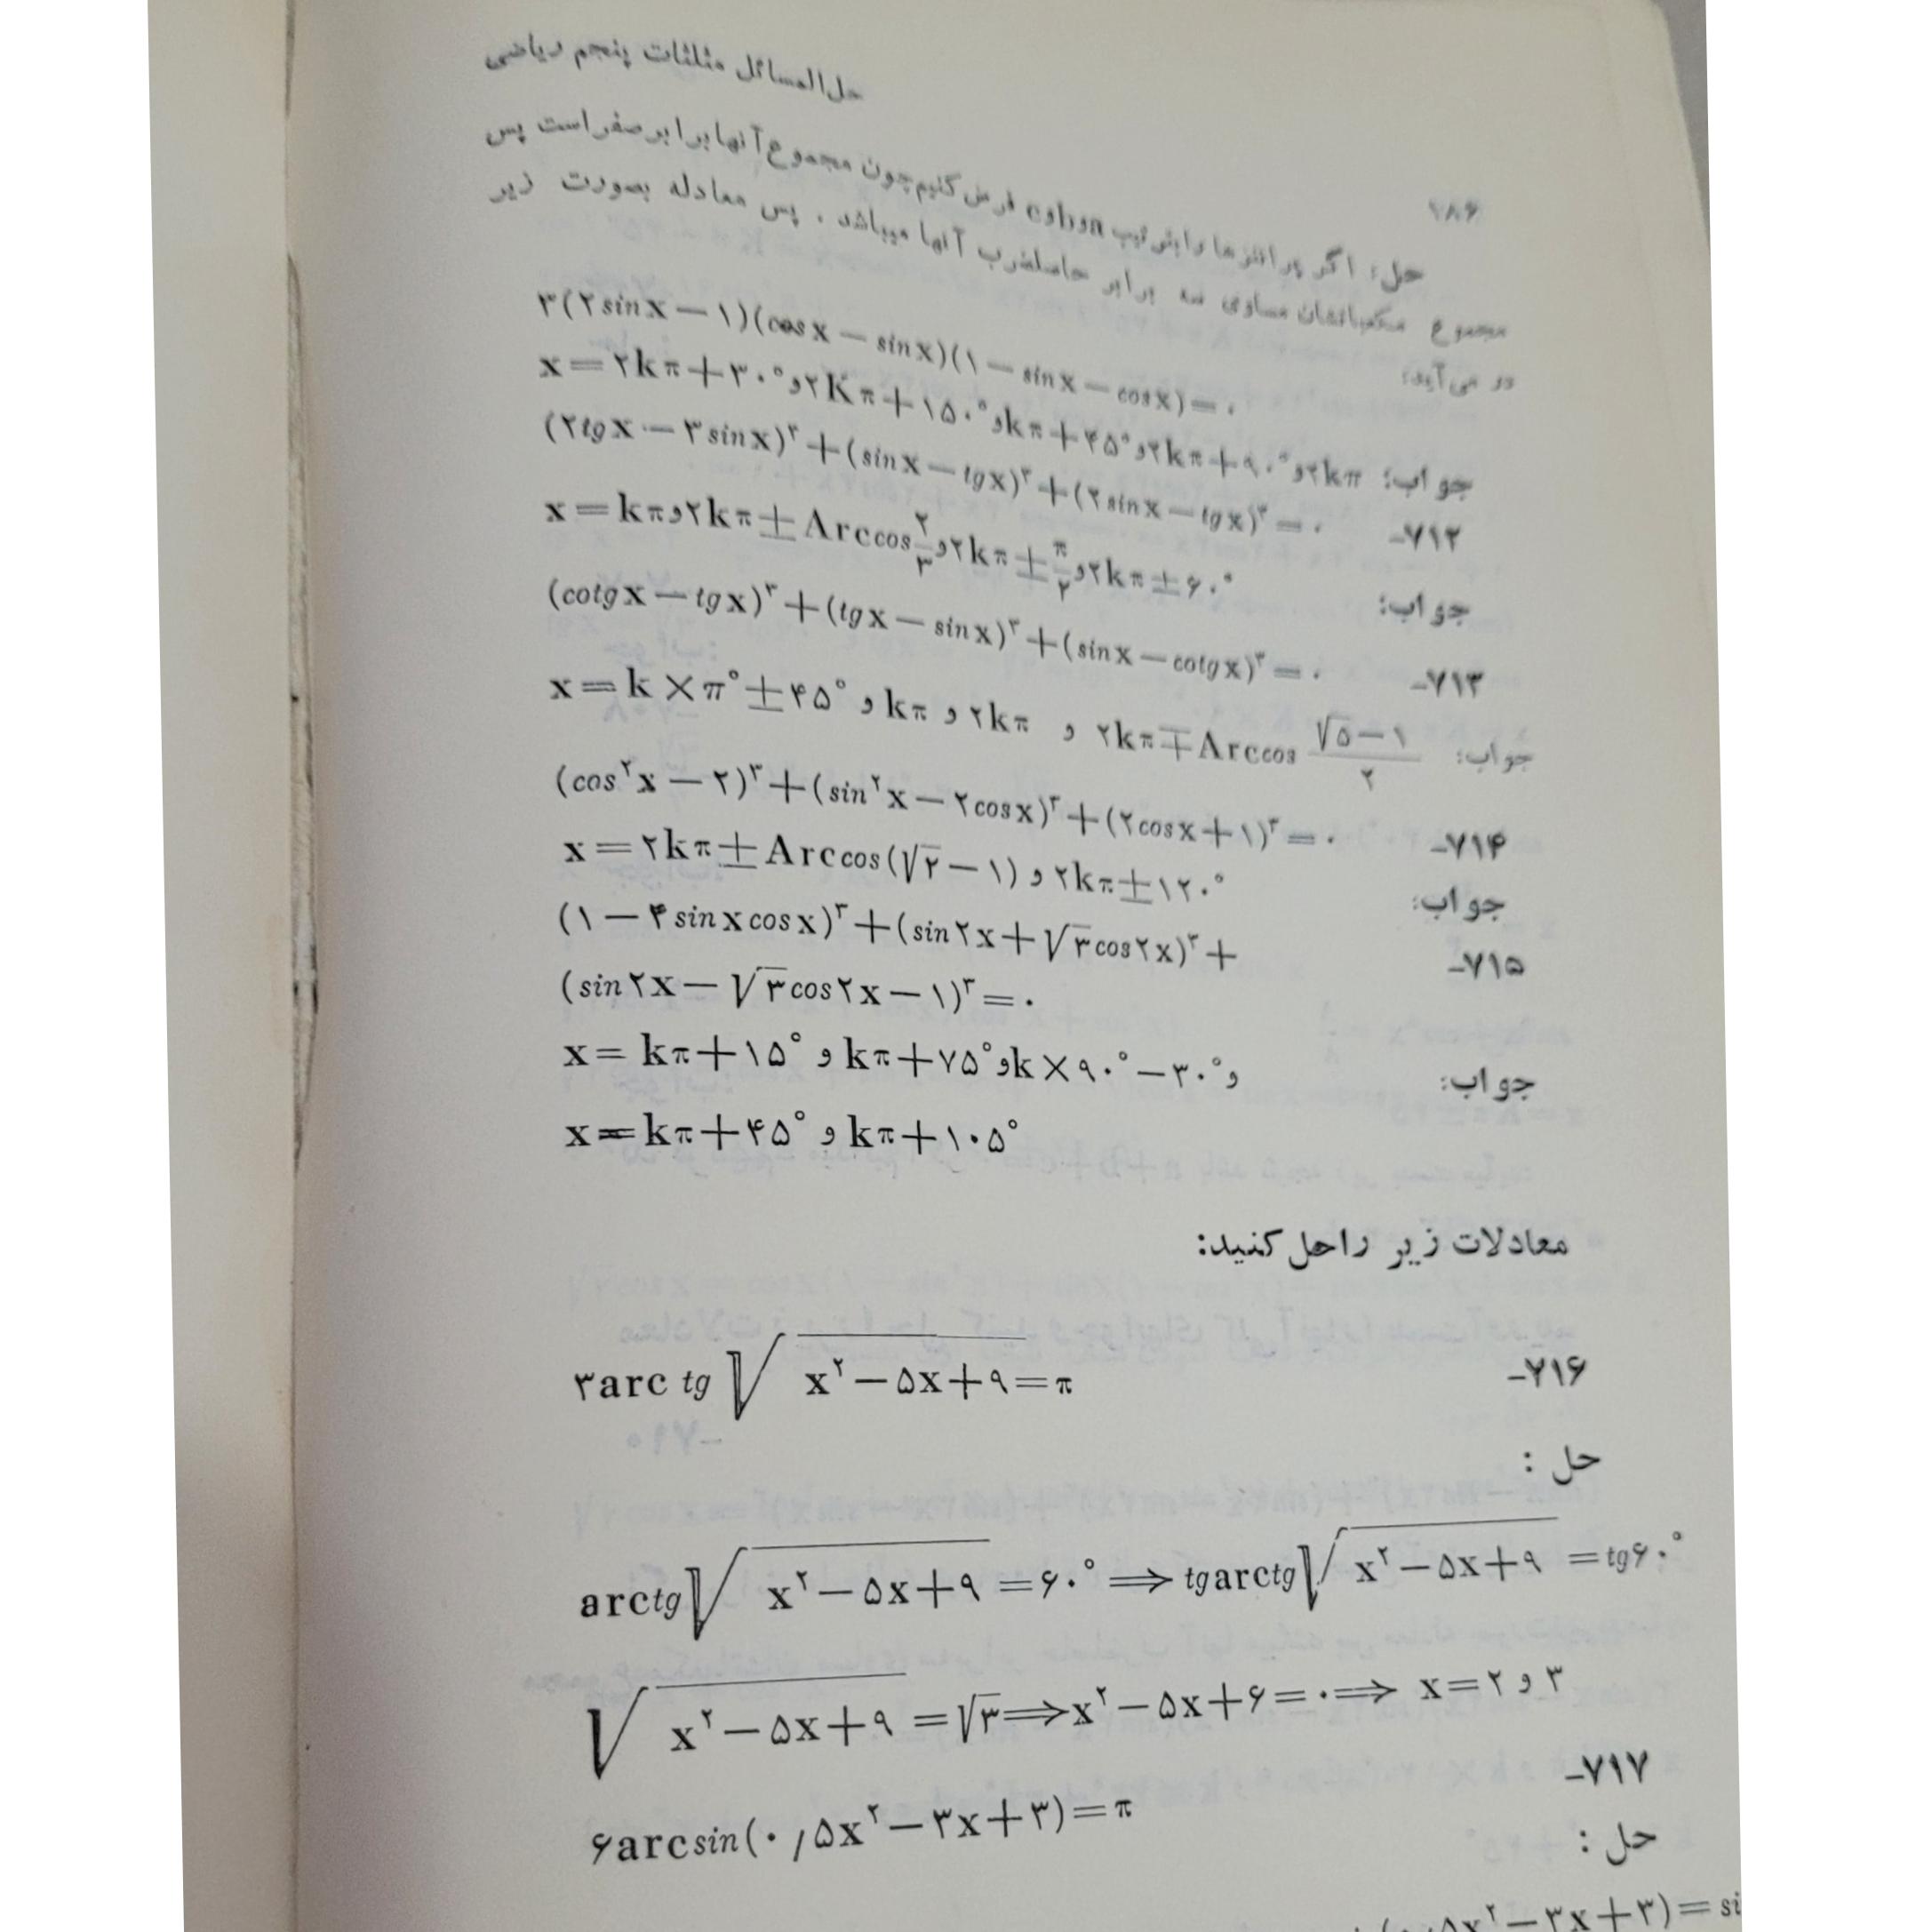 حل‌المسائل مثلثات پنجم ریاضی
۱۸۶
حل: اگر پرانتزها را بترتیب a و b و c فرض کنیم چون مجموع آنها برابر صفر است پس
مجموع مکعباتشان مساوی سه برابر حاصلضرب آنها میباشد، پس معادله بصورت زیر
در می‌آید:
۳(۲sinx−۱)(cosx−sinx)(۱−sinx−cosx)=۰
جواب: x=۲kπ+۳۰° و ۲Kπ+۱۵۰° و kπ+۴۵° و ۲kπ+۹۰° و ۲kπ
۷۱۲− (۲tgx−۳sinx)³+(sinx−tgx)³+(۲sinx−tgx)³=۰
جواب: x=kπ و ۲kπ±Arccos۲/۳ و ۲kπ±π/۲ و ۲kπ±۶۰°
۷۱۳− (cotgx−tgx)³+(tgx−sinx)³+(sinx−cotgx)³=۰
جواب: x=k×π°±۴۵° و kπ و ۲kπ و ۲kπ∓Arccos (√۵−۱)/۲
۷۱۴− (cos²x−۲)³+(sin²x−۲cosx)³+(۲cosx+۱)³=۰
جواب: x=۲kπ±Arccos(√۲−۱) و ۲kπ±۱۲۰°
۷۱۵− (۱−۴sinxcosx)³+(sin۲x+√۳cos۲x)³+
(sin۲x−√۳cos۲x−۱)³=۰
جواب: x=kπ+۱۵° و kπ+۷۵° و k×۹۰°−۳۰° و
x=kπ+۴۵° و kπ+۱۰۵°
معادلات زیر را حل کنید:
۷۱۶− ۳arc tg√(x²−۵x+۹)=π
حل :
arctg√(x²−۵x+۹)=۶۰° ⟹ tgarctg√(x²−۵x+۹)=tg۶۰°
√(x²−۵x+۹)=√۳ ⟹ x²−۵x+۶=۰ ⟹ x=۲ و ۳
۷۱۷−
۶arcsin(۰/۵x²−۳x+۳)=π
حل :
۵x²−۳x+۳)=si